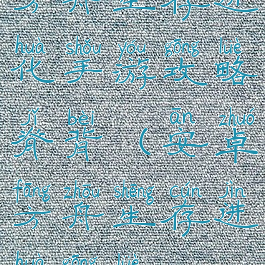 huà shǒu yóu gōng lüè
化手游攻略
jǐ bèi ān zhuó
脊背（安卓
fāng zhōu shēng cún jìn
方舟生存进